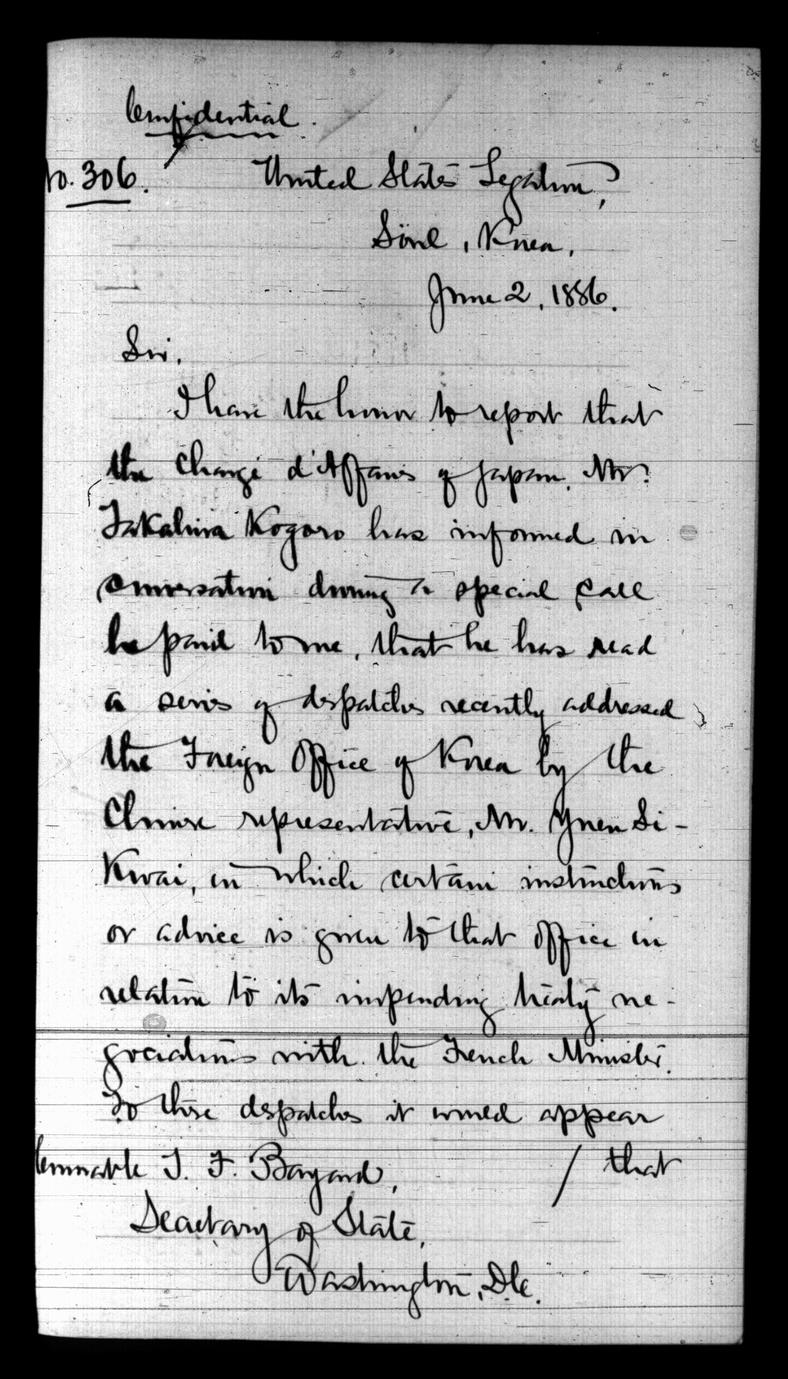 Confidential.
No. 306.
United States Legation,
Söul, Korea,
June 2, 1886.
Sir,
I have the honor to report that
the Chargé d'Affaires of Japan, Mr.
Takahira Kogoro has informed in
conversation during a special call
he paid to me, that he has read
a series of despatches recently addressed
the Foreign Office of Korea by the
Chinese representative, Mr. Yuen Si-
Kwai, in which certain instructions
or advice is given to that office in
relation to its impending treaty ne-
gociations with the French Minister.
In these despatches it would appear
/ that
Honorable T. F. Bayard,
Secretary of State,
Washington, D.C.